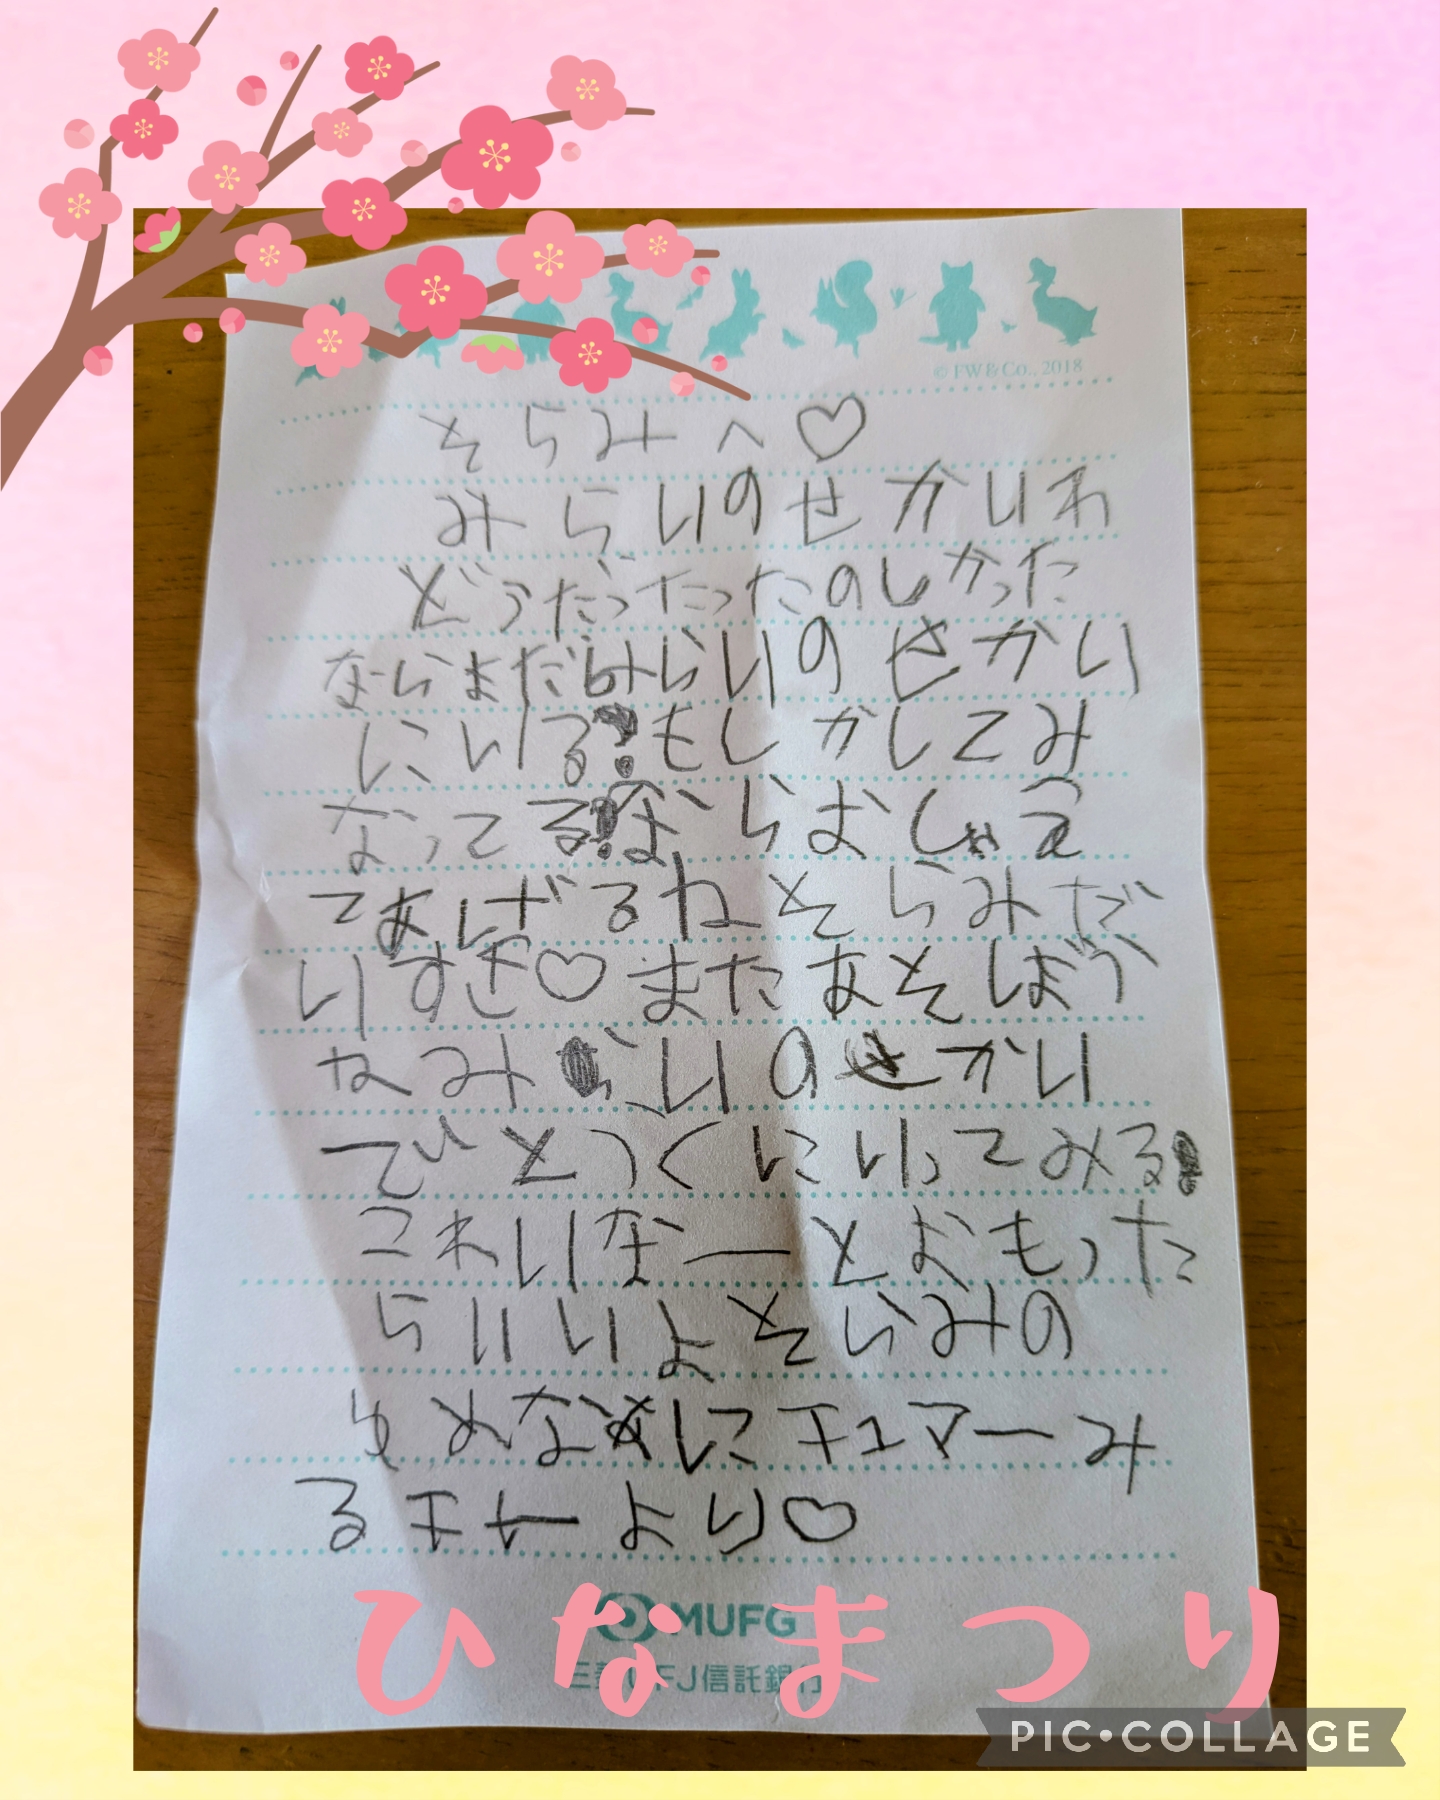 © FW & Co., 2018
そらみへ♡
みらいのせかいわ
どうだったったのしかった
ならまだみらいのせかい
にいる?もしかしてみ
なってる?ならおしゃえ
てあげるねそらみだ
いすき♡またあそぼう
なみらいのせかい
でとつくにいってみる
これいなーとおもった
らいいよそらみの
ゆめなかにチュマーみ
るチャーより♡
MUFG
三菱UFJ信託銀行
ひなまつり
PIC•COLLAGE